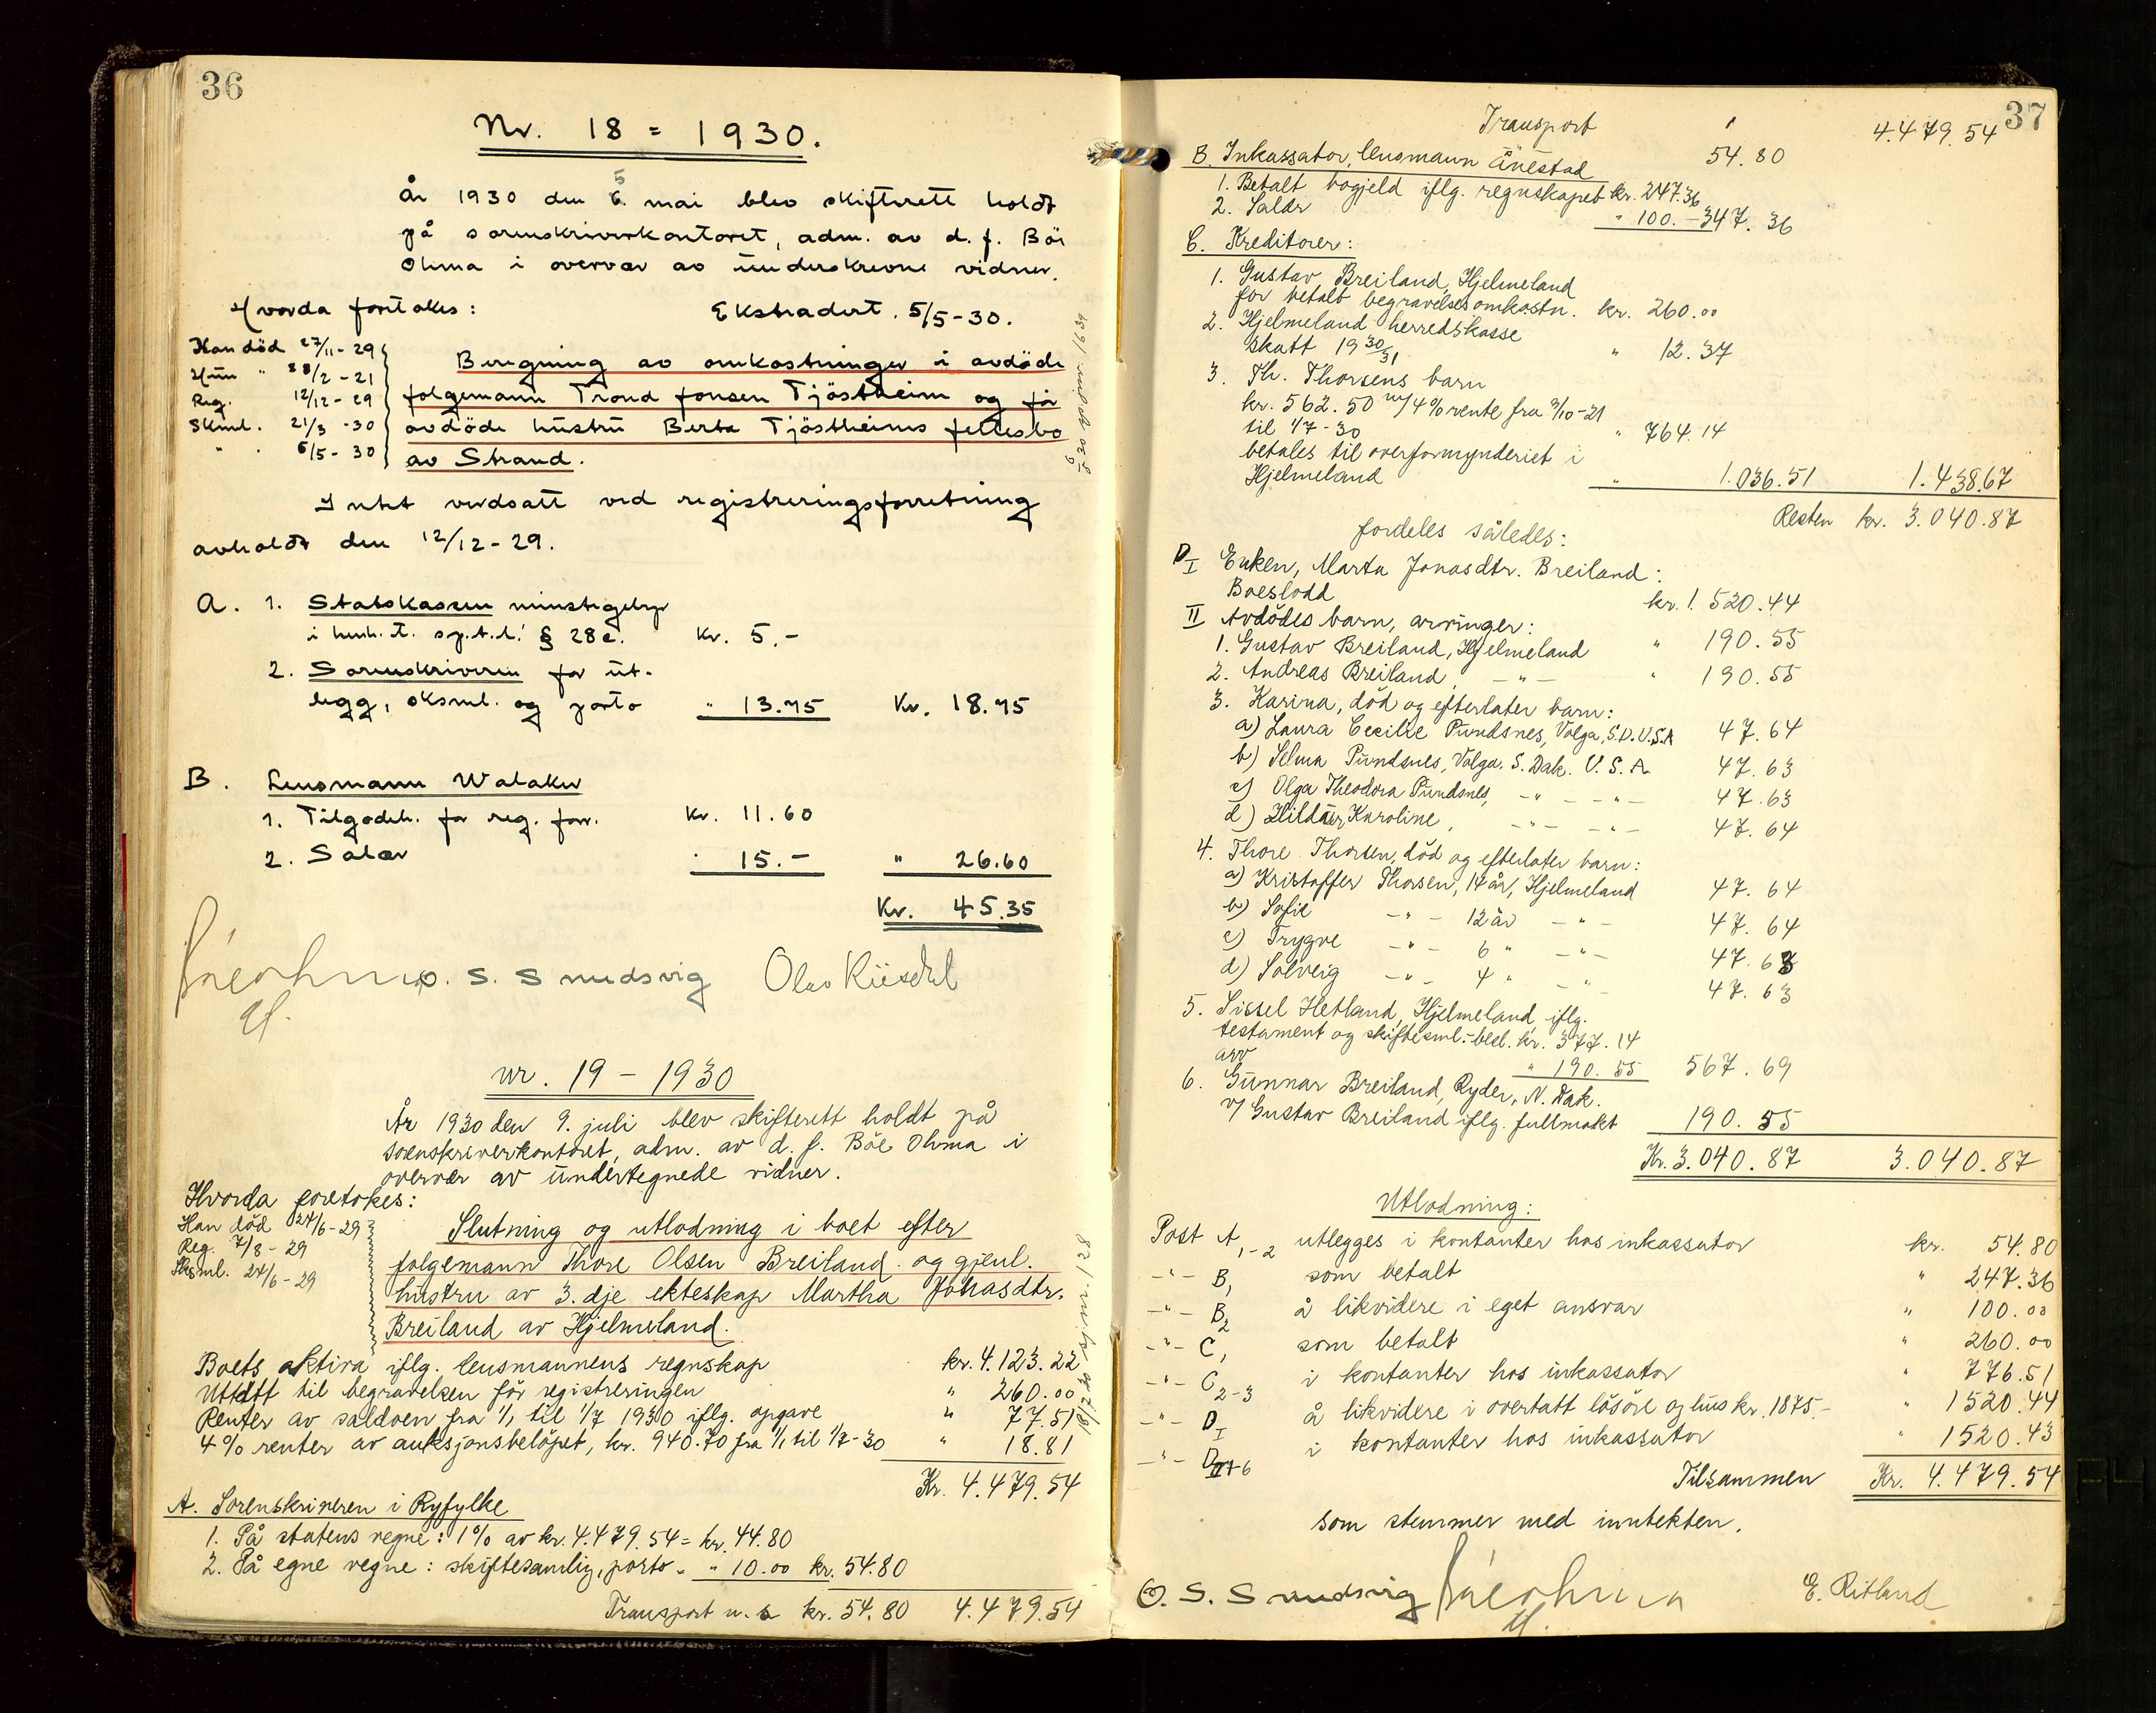 36
Nr. 18 = 1930.
År 1930 den 5. mai blev skifterett holdt
på sorenskriverkontoret, adm. av d. f. Böe
Ohma i overvær av underskrevne vidner.
Hvorda foretokes: Ekstradert. 5/5-30.
Han död 27/11-29
Hun " 28/2-21
Reg. 12/12-29
Skml. 21/3-30
" . 5/5-30
Beregning av omkostninger i avdöde
folgemann Trond Jonsen Tjöstheim og før
avdöde hustru Berta Tjöstheims fellesbo
av Strand.
Intet verdsatt ved registreringsforretning
avholdt den 12/12-29.
A. 1. Statskassen minstegebyr
i henh. t. sp.t.l. § 28c. Kr. 5.-
2. Sorenskriveren for ut-
legg, sksml. og porto " 13.75 Kr. 18.75
B. Lensmann Walaker
1. Tilgodeh. for reg. forr. Kr. 11.60
2. Salær " 15.- " 26.60
Kr. 45.35
O. S. Smudsvig
nr. 19 - 1930
År 1930 den 9. juli blev skifterett holdt på
sorenskriverkontoret, adm. av d. f. Böe Ohma i
overvær av undertegnede vidner.
Hvorda foretokes:
Han död 24/6-29
Reg. 7/8-29
Sksml. 24/6-29
Slutning og utlodning i boet efter
folgemann Thore Olsen Breiland og gjenl.
hustru av 3. dje ekteskap Martha Johasdtr.
Breiland av Hjelmeland.
Boets aktiva iflg. lensmannens regnskap kr. 4.123.22
Uttatt til begravelsen för registreringen " 260.00
Renter av saldoen fra 1/1 til 1/7 1930 iflg. opgave " 77.51
4% renter av auksjonsbelöpet, kr. 940.70 fra 1/1 til 1/7-30 " 18.81
Kr. 4.479.54
A. Sorenskriveren i Ryfylke
1. På statens regne: 1% av kr. 4.479.54 = kr. 44.80
2. På egne regne: skiftesamling, porto - " 10.00 kr. 54.80
Transport n. s kr. 54.80 4.479.54
37
Transport 54.80 4.479.54
B. Inkassator, lensmann Ånestad
1. Betalt bogjeld iflg. regnskapet kr. 247.36
2. Salær " 100.- 347.36
C. Kreditorer:
1. Gustav Breiland, Hjelmeland
for betalt begravelsesomkostn. kr. 260.00
2. Hjelmeland herredskasse
skatt 1930/31 " 12.37
3. Th. Thorsens barn
kr. 562.50 m/4% rente fra 9/10-21
til 1/7-30 " 764.14
betales til overformynderiet i
Hjelmeland " 1.036.51 1.438.67
Resten kr. 3.040.87
fordeles således:
D I Enken, Marta Jonasdtr. Breiland:
Boeslodd kr. 1.520.44
II Avdödes barn, arvinger:
1. Gustav Breiland, Hjelmeland " 190.55
2. Andreas Breiland, -"- " 190.55
3. Karina, död og efterlater barn:
a) Laura Cecilie Pundsnes, Volga, S.D. U.S.A 47.64
b) Selma Pundsnes, Volga. S. Dak. U. S. A 47.63
c) Olga Theodora Pundsnes, -"- -"- 47.63
d) Hildur Karoline, -"- -"- 47.64
4. Thore Thorsen, död og efterlater barn:
a) Kristoffer Thorsen, 14 år, Hjelmeland 47.64
b) Sofie -"- 12 år -"- 47.64
c) Trygve -"- 6 " -"- 47.63
d) Solveig -"- 4 " -"- 47.63
5. Sissel Hetland, Hjelmeland iflg.
testament og skiftesml.-besl. kr. 377.14
arv " 190.55 567.69
6. Gunnar Breiland, Ryder, N. Dak.
v/ Gustav Breiland iflg. fullmakt 190.55
Kr. 3.040.87 3.040.87
Utlodning:
Post A 1-2 utlegges i kontanter hos inkassator kr. 54.80
-"- B 1 som betalt " 247.36
-"- B 2 å likvidere i eget ansvar " 100.00
-"- C 1 som betalt " 260.00
-"- C 2-3 i kontanter hos inkassator " 776.51
-"- D I å likvidere i overtatt lösöre og hus kr. 1875.- " 1520.44
-"- D II 1-6 i kontanter hos inkassator " 1520.43
Tilsammen Kr. 4.479.54
som stemmer med inntekten.
O. S. Smudsvig
E. Ritland